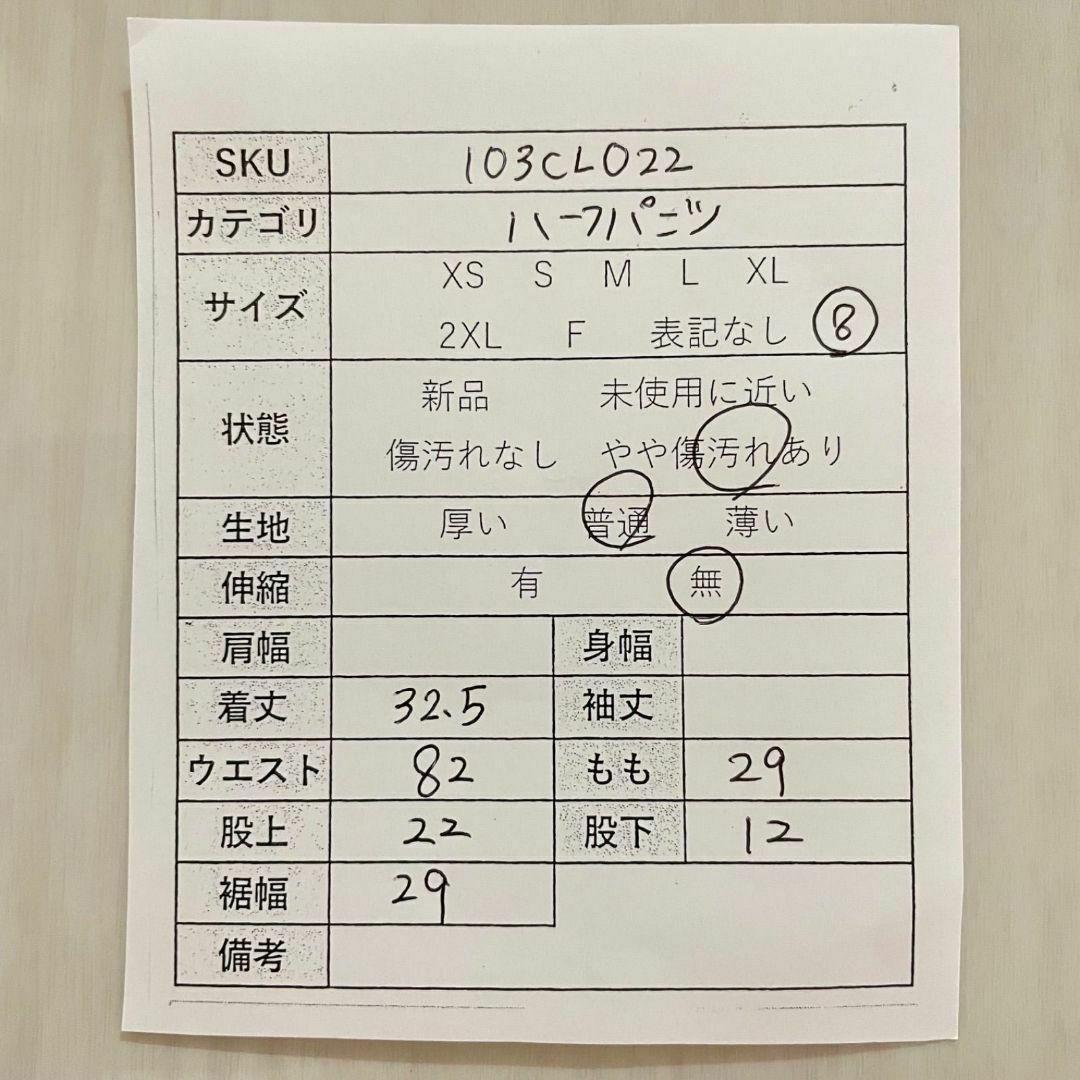 SKU 103CL022
カテゴリ ハーフパンツ
サイズ XS S M L XL
2XL F 表記なし 8
状態 新品 未使用に近い
傷汚れなし やや傷汚れあり
生地 厚い 普通 薄い
伸縮 有 無
肩幅 身幅
着丈 32.5 袖丈
ウエスト 82 もも 29
股上 22 股下 12
裾幅 29
備考